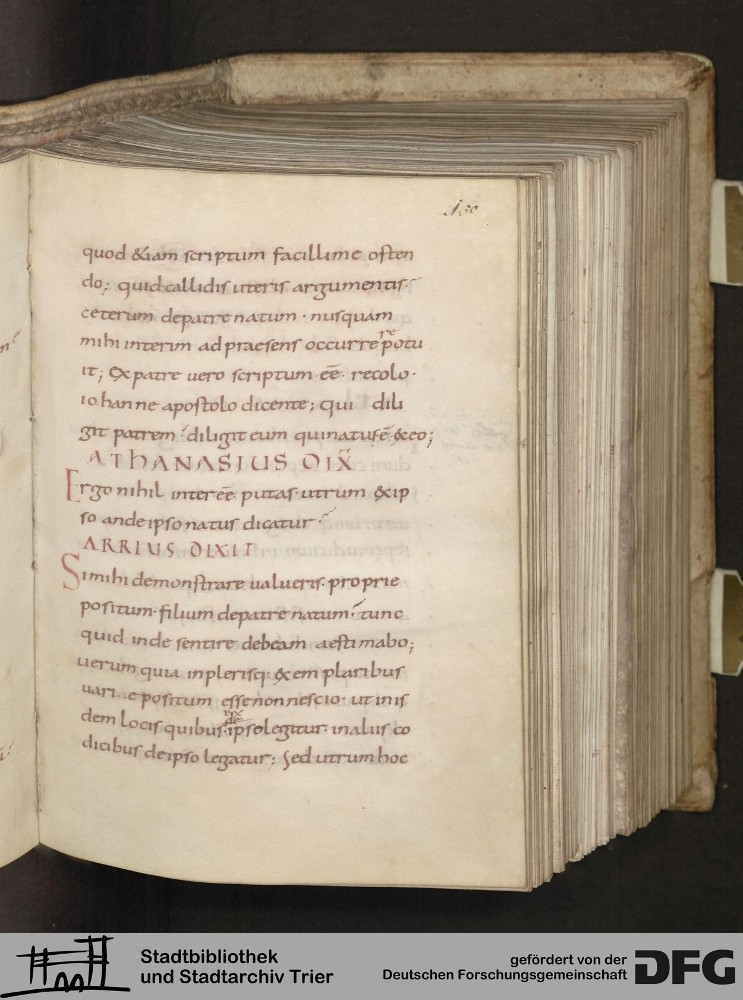 130
quod &iam scriptum facillime osten
do; quid callidis uteris argumentis·
ceterum de patre natum · nusquam
mihi interim ad praesens occurrere potu
it; Ex patre uero scriptum· eē· recolo·
iohanne apostolo dicente; qui dili
git patrem· diligit eum qui natus ē & eo;
ATHANASIUS DIX̄
Ergo nihil interēē putas· utrum ex ip
so an de ipso natus dicatur·
ARRIUS DIXIT
Si mihi demonstrare ualueris· proprie
positum· filium de patre natum· tunc
quid inde sentire debeam aestimabo;
uerum quia in plerisq· exemplaribus
uari e positum esse non nescio· ut in is
dem locis quibus· ex ipso legitur· in aliis co
dicibus de ipso legatur; Sed utrum hoc
Stadtbibliothek
und Stadtarchiv Trier
gefördert von der
Deutschen Forschungsgemeinschaft
DFG